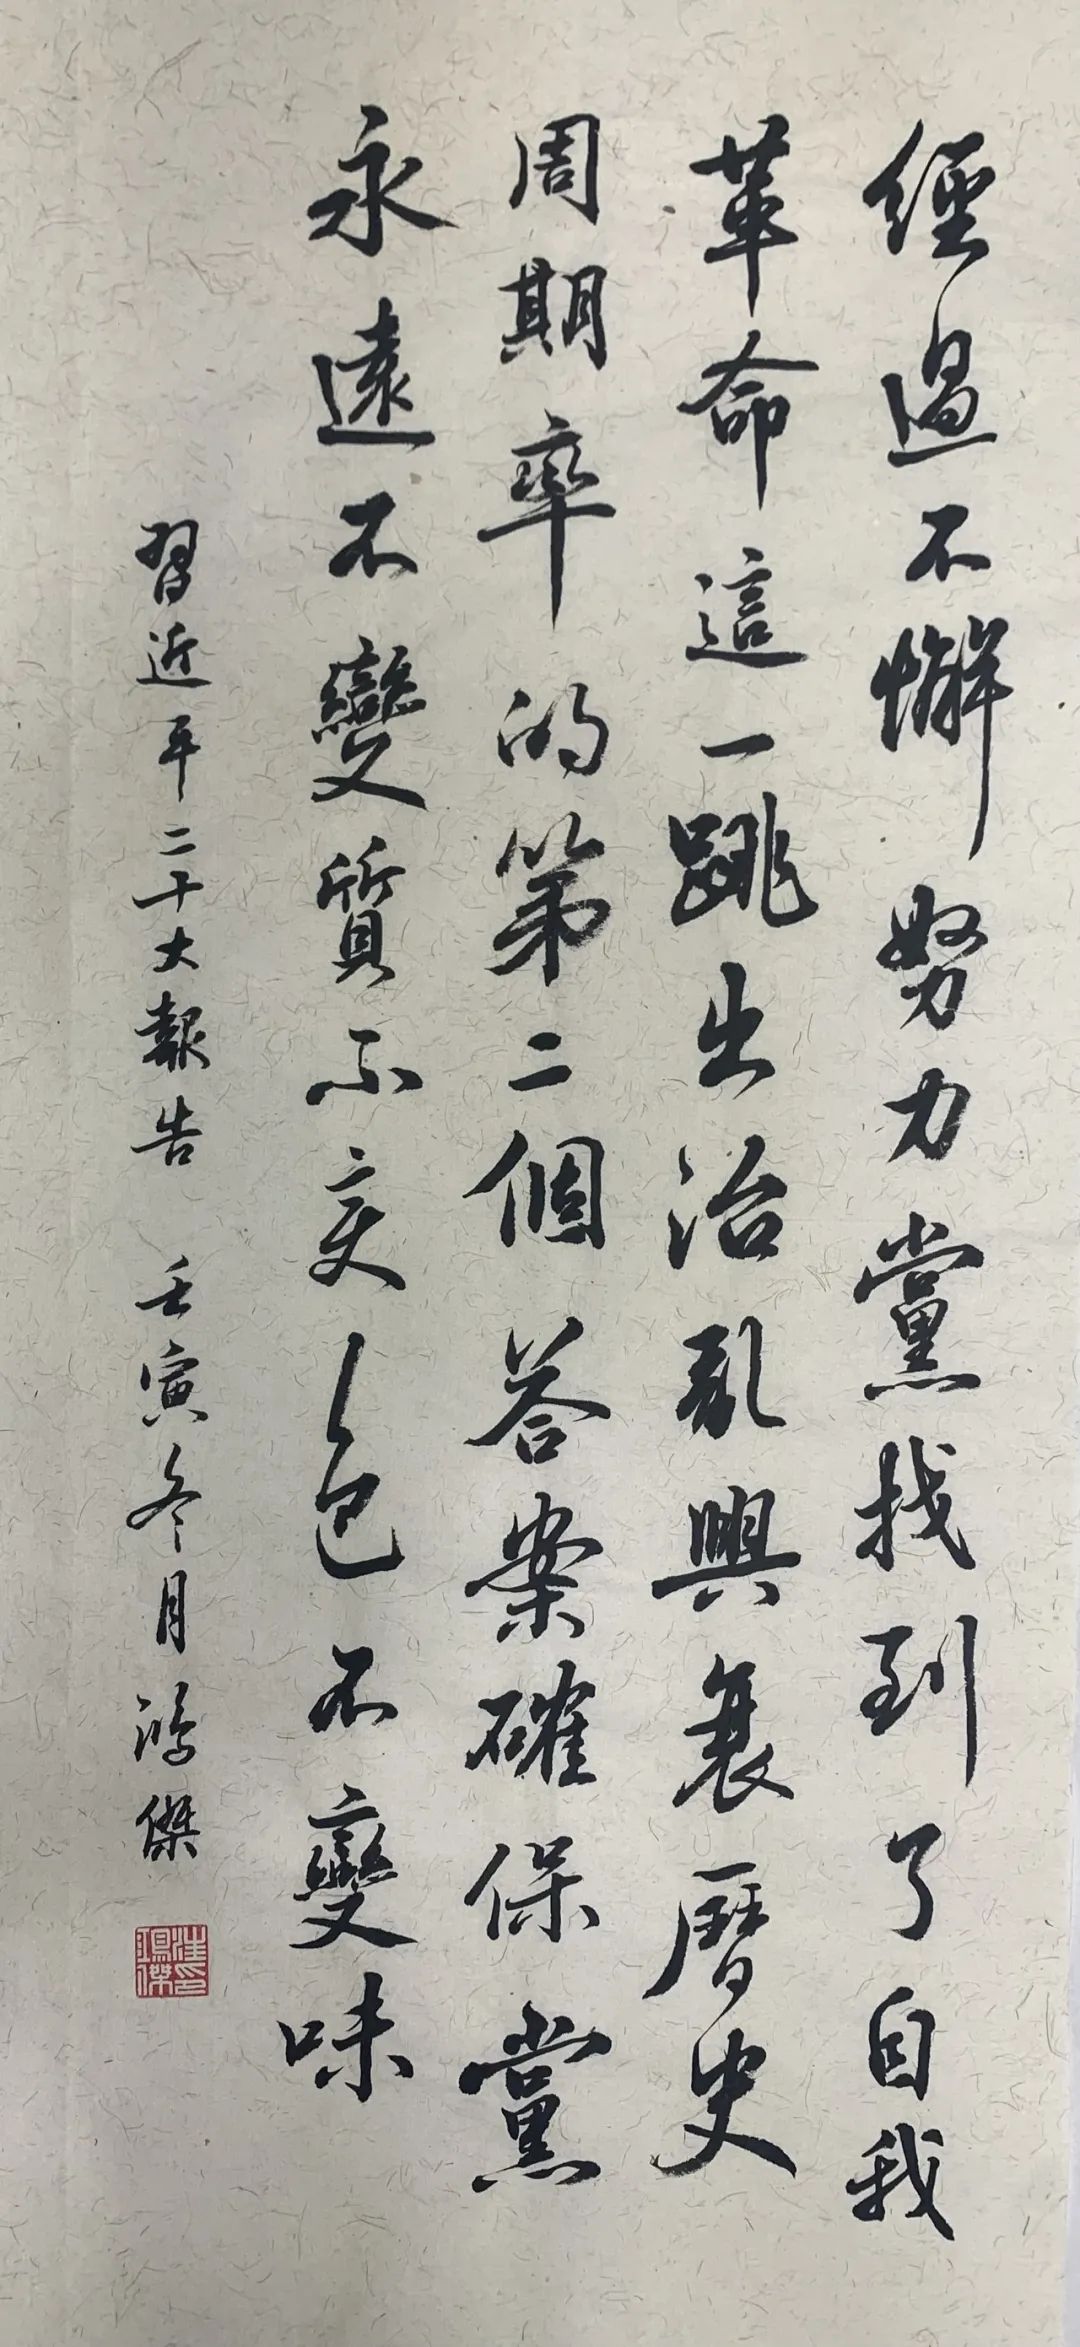 經過不懈努力黨找到了自我
革命這一跳出治亂興衰歷史
周期率的第二個答案確保黨
永遠不變質不变色不變味
習近平二十大報告 壬寅冬月鴻傑